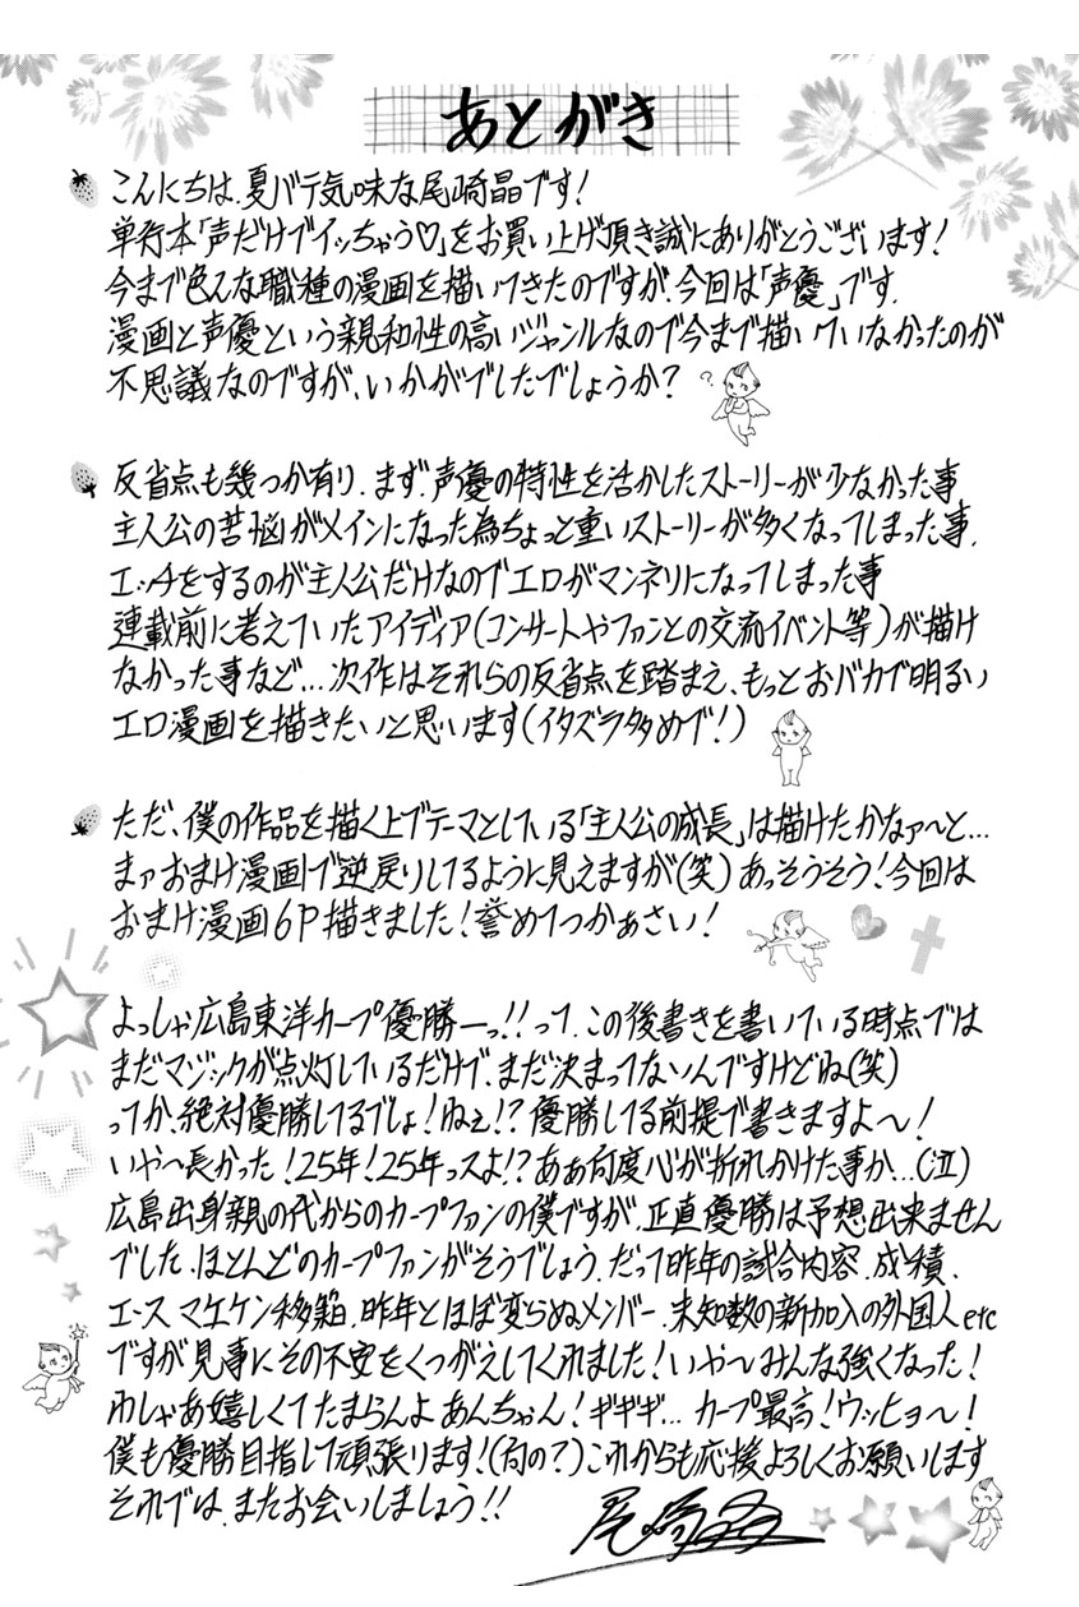 あとがき
こんにちは、夏バテ気味な尾崎晶です!
単行本「声だけでイッちゃう♡」をお買い上げ頂き誠にありがとうございます!
今まで色んな職種の漫画を描いてきたのですが、今回は「声優」です。
漫画と声優という親和性の高いジャンルなので今まで描いていなかったのが
不思議なのですが、いかがでしたでしょうか?
?
反省点も幾つか有り、まず、声優の特性を活かしたストーリーが少なかった事、
主人公の苦悩がメインになった為ちょっと重いストーリーが多くなってしまった事、
エッチをするのが主人公だけなのでエロがマンネリになってしまった事
連載前に考えていたアイディア(コンサートやファンとの交流イベント等)が描け
なかった事など…次作はそれらの反省点を踏まえ、もっとおバカで明るい
エロ漫画を描きたいと思います(イタズラ多めで!)
ただ、僕の作品を描く上でテーマとしている「主人公の成長」は描けたかなァ〜と…
まァおまけ漫画で逆戻りしてるように見えますが(笑)あっそうそう!今回は
おまけ漫画6P描きました!誉めてつかぁさい!
よっしゃ広島東洋カープ優勝ーっ!!って、この後書きを書いている時点では
まだマジックが点灯しているだけで、まだ決まってないんですけどね(笑)
ってか、絶対優勝してるでしょ!ねぇ!?優勝してる前提で書きますよ〜!
いや〜長かった!25年!25年っスよ!?ああ何度心が折れかけた事か…(泣)
広島出身親の代からのカープファンの僕ですが、正直優勝は予想出来ません
でした、ほとんどのカープファンがそうでしょう、だって昨年の試合内容、成績、
エース マエケン移籍、昨年とほぼ変らぬメンバー、未知数の新加入の外国人etc
ですが見事にその不安をくつがえしてくれました!いや〜みんな強くなった!
わしゃあ嬉しくてたまらんよ あんちゃん!ギギギ…カープ最高!ウッヒョ〜!
僕も優勝目指して頑張ります!(何の?)これからも応援よろしくお願いします
それでは、またお会いしましょう!!
尾崎晶